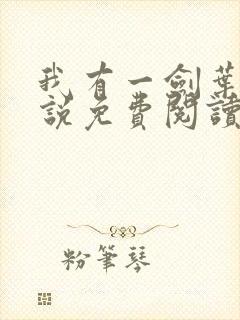 我有一劍葉
說免費閱讀
粉筆琴